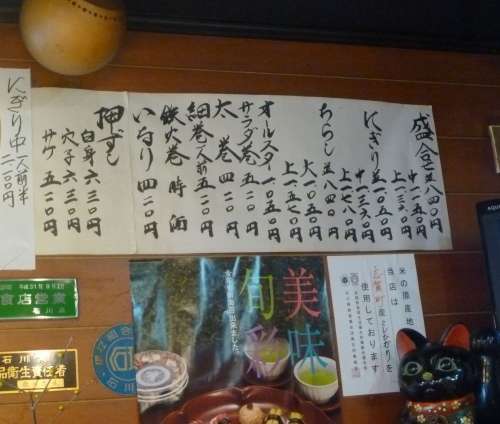 盛合セ並八四〇円
中一一五〇円
上一三六〇円
にぎり並一〇五〇円
中一三六〇円
上一七八〇円
ちらし並八四〇円
大一〇五〇円
上一五七〇円
オルスター一〇五〇円
サラダ巻五二〇円
太巻四二〇円
細巻一人前五二〇円
鉄火巻時価
いなり四二〇円
押ずし
白身六三〇円
穴子六三〇円
サケ五二〇円
にぎり中一人前半
二一〇〇円
美味
旬彩
米の原産地
当店は
志賀町産こしひかりを
使用しております
平成31年8月
食店営業
石川県
石川
品衛生責任者